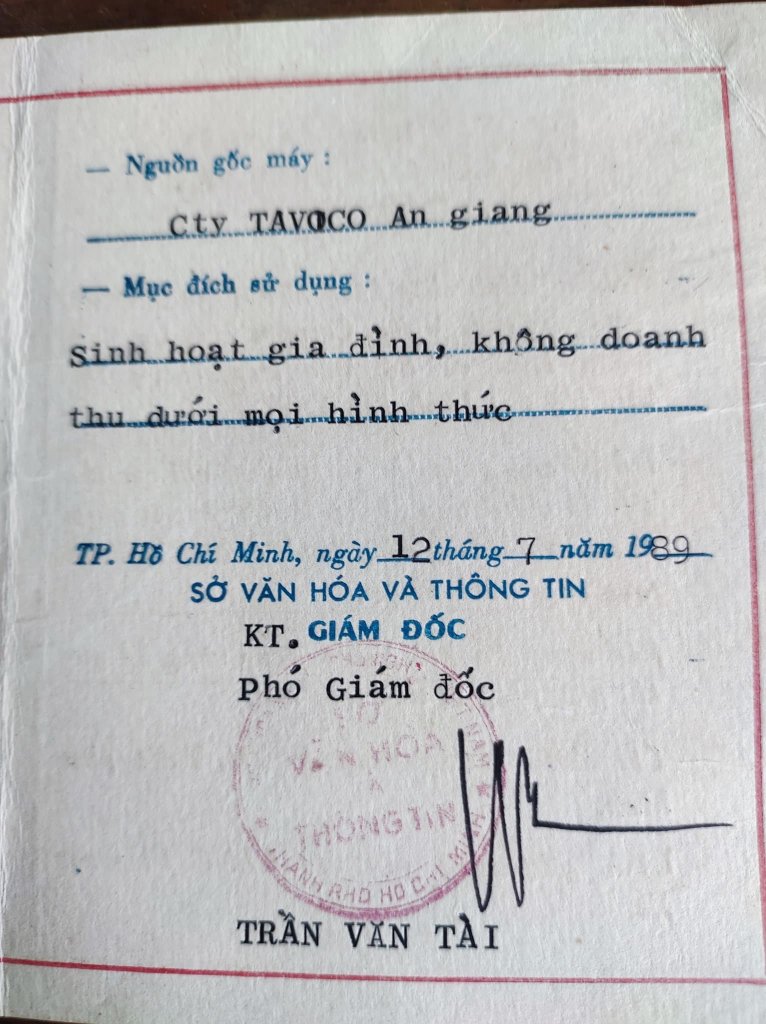 — Nguồn gốc máy :
Cty TAVOCO An giang
— Mục đích sử dụng :
Sinh hoạt gia đình, không doanh
thu dưới mọi hình thức
TP. Hồ Chí Minh, ngày 12 tháng 7 năm 1989
SỞ VĂN HÓA VÀ THÔNG TIN
KT. GIÁM ĐỐC
Phó Giám đốc
VĂN HÓA
THÔNG TIN
THÀNH PHỐ HỒ CHÍ MINH
TRẦN VĂN TÀI